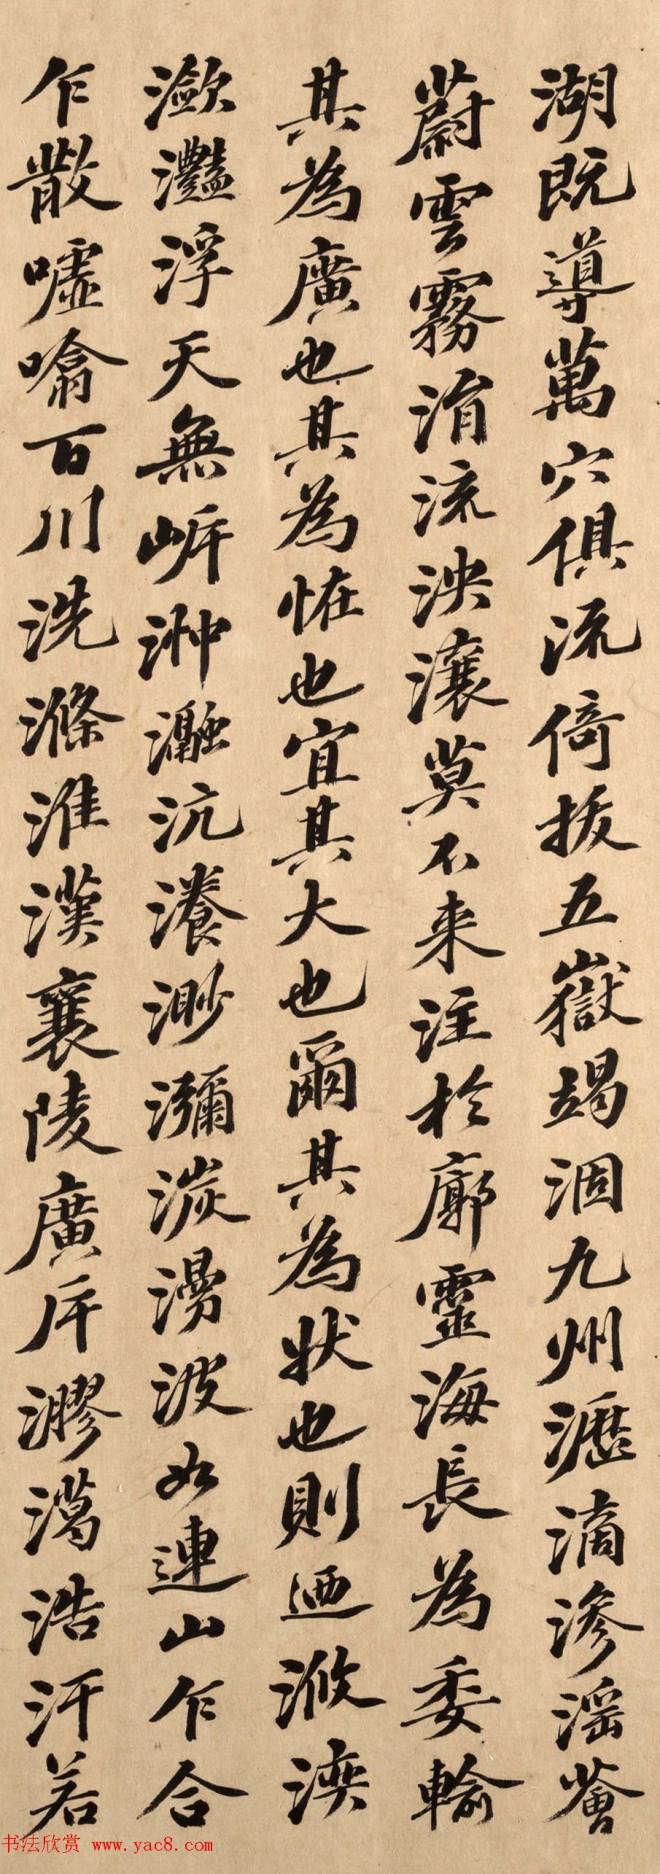 湖既導萬穴俱流倚拔五嶽竭涸九州瀝滴滲淫薈
蔚雲霧涓流泱瀼莫不來注於廓靈海長為委輸
其為廣也其為怪也宜其大也爾其為狀也則迺浟湙
瀲灩浮天無岸沖瀜沆瀁渺瀰湠漫波如連山乍合
乍散噓噏百川洗滌淮漢襄陵廣斥漻灂浩汗若
书法欣赏 www.yac8.com